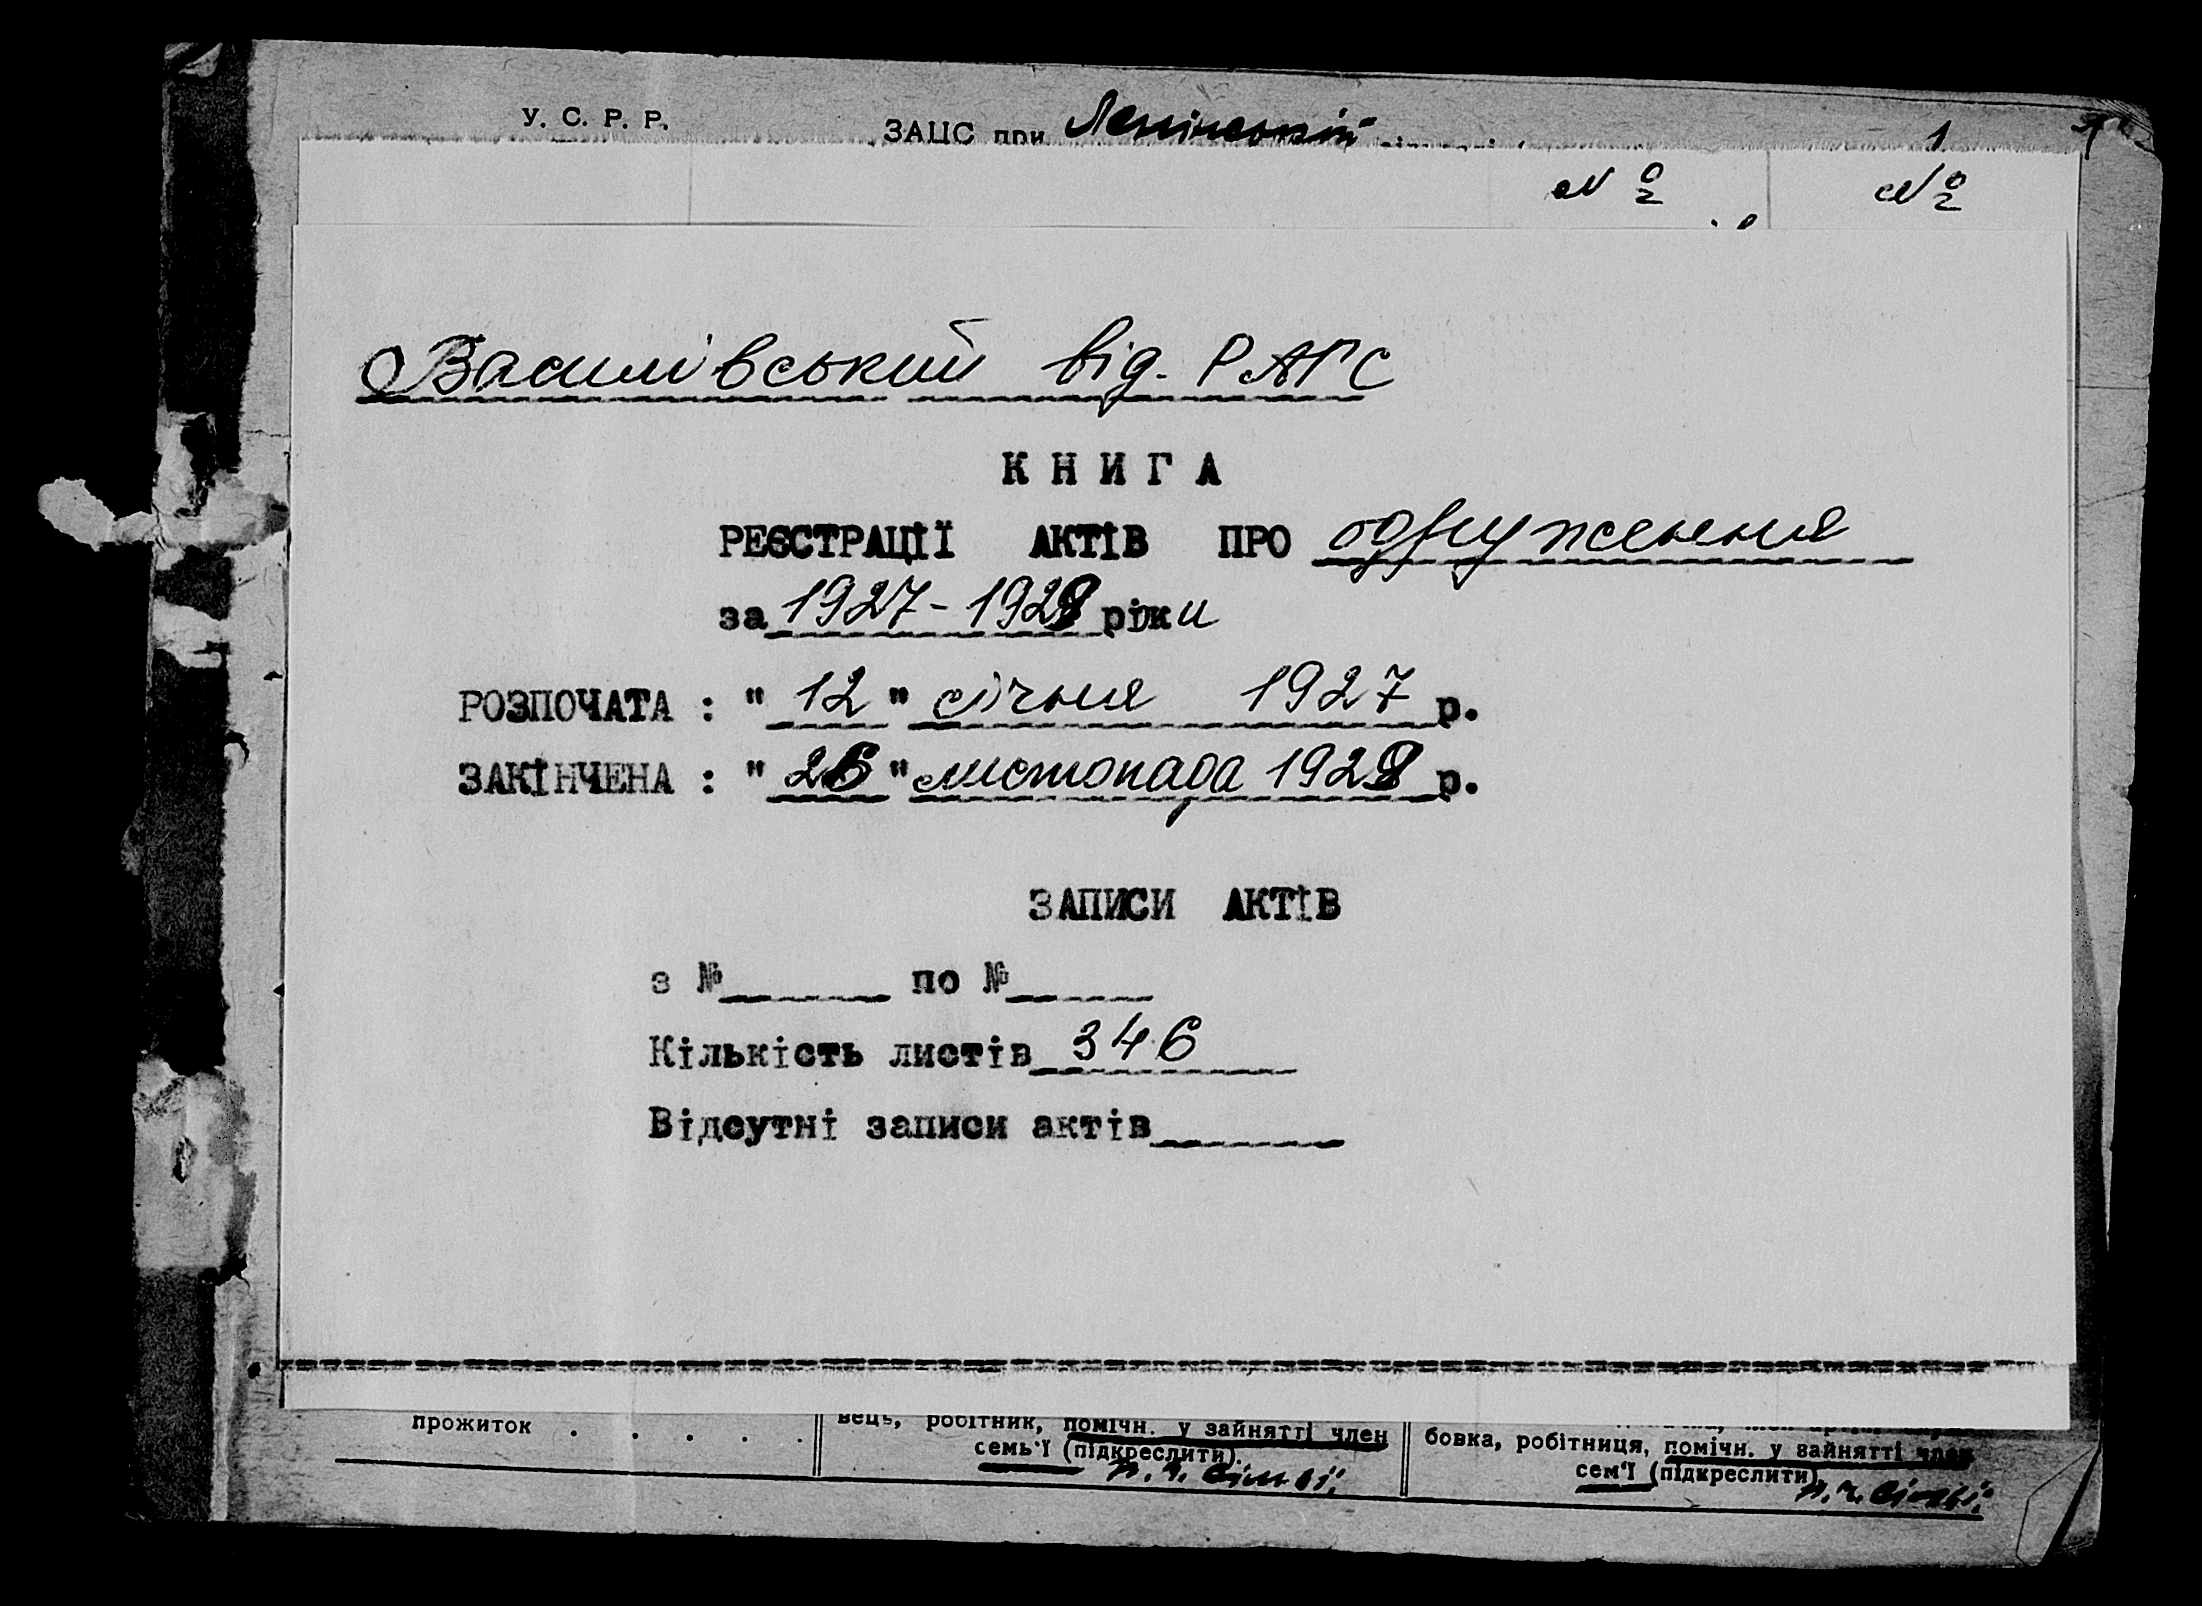 У. С. Р. Р. ЗАЦС при Ленінській 1
№ №
Василівський від. РАГС
КНИГА
РЕЄСТРАЦІЇ АКТІВ ПРО одруження
за 1927-1928 ріки
РОЗПОЧАТА : "12" січня 1927 р.
ЗАКІНЧЕНА : "26" листопада 1928 р.
ЗАПИСИ АКТІВ
з №______ по №______
Кількість листів 346
Відсутні записи актів________
прожиток . . . . . вець, робітник, помічн. у зайнятті член бовка, робітниця, помічн. у зайнятті член
семь'ї (підкреслити). сем'ї (підкреслити)
п. ч. сімьї. п. ч. сімьї.